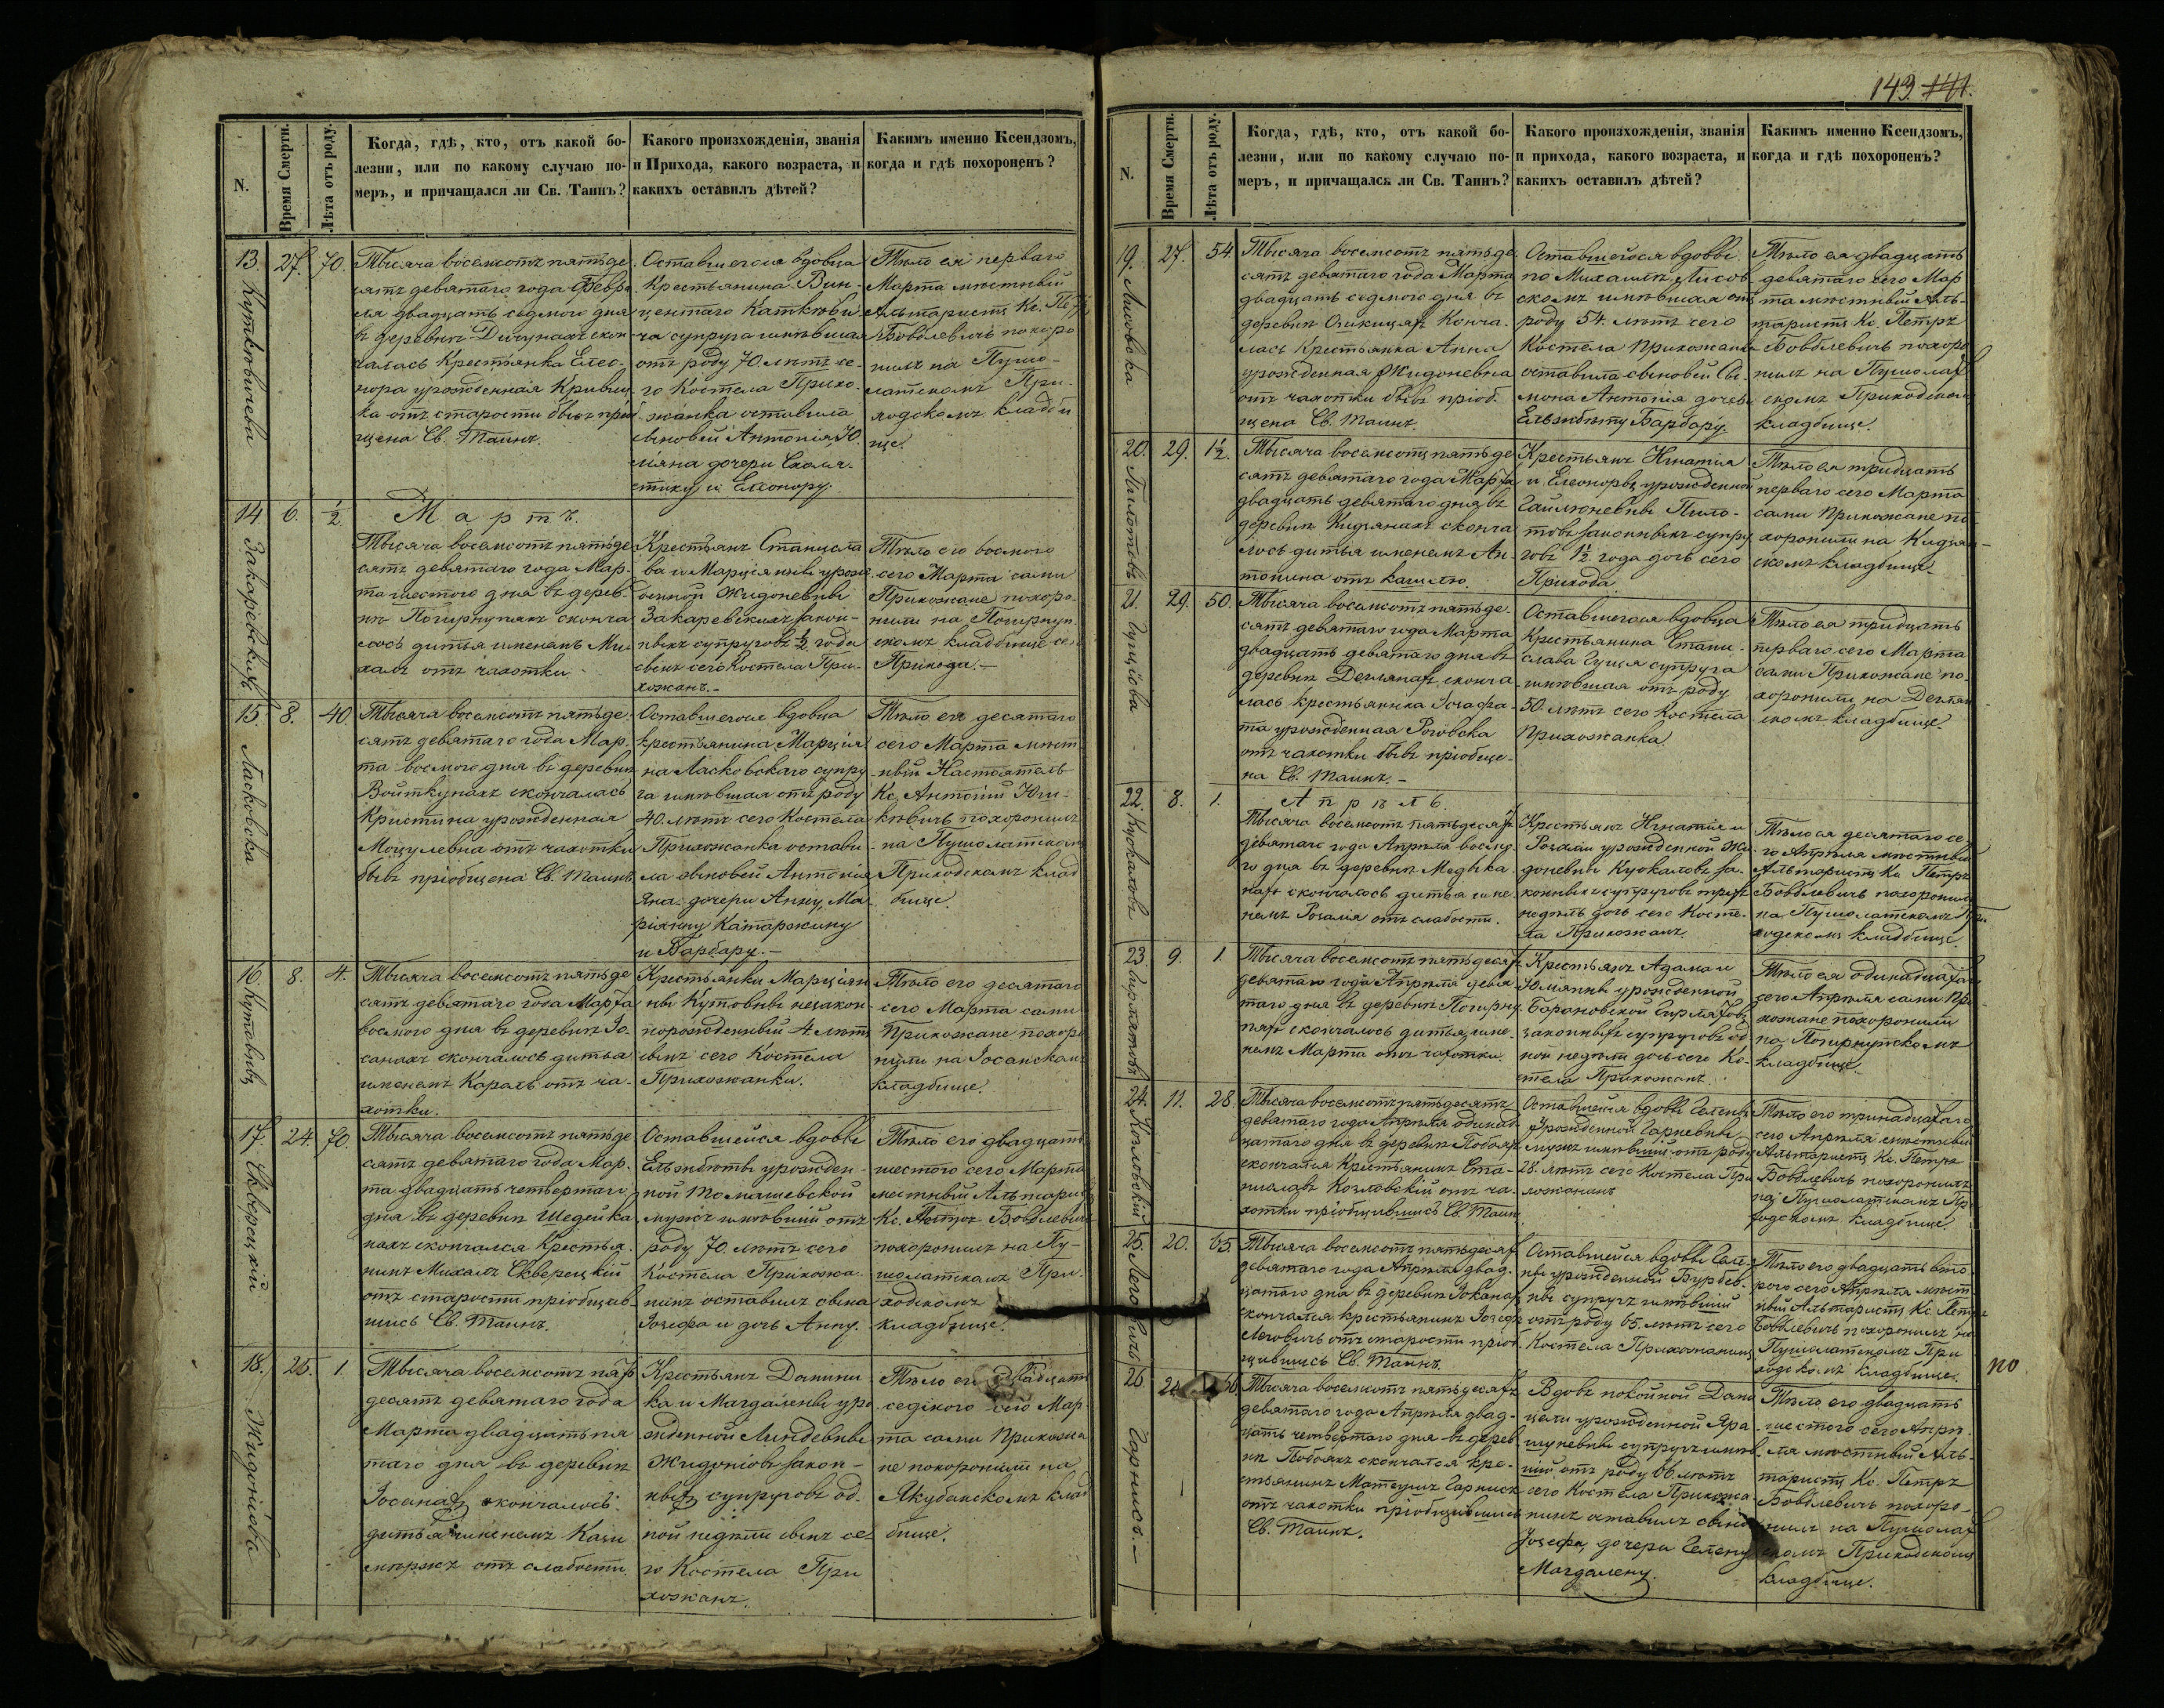 N.
Время Смерти.
Лѣта отъ роду.
Когда, гдѣ, кто, отъ какой бо-
лезни, или по какому случаю по-
меръ, и причащался ли Св. Таинъ?
Какого произхожденія, званія
и Прихода, какого возраста, и
какихъ оставилъ дѣтей?
Какимъ именно Ксендзомъ,
когда и гдѣ похороненъ?
13.
27.
70.
Тысяча восемсотъ пятьде
сятъ девятаго года Февра
ля двадцать седмого дня
въ деревни скон
чалась Крестьянка Елео-
нора урожденная
ка отъ старости бывъ пріоб
щена Св. Таинъ.
Оставшегося вдовца
Крестьянина Вин-
центаго
ча супруга имѣвшая
отъ роду 70 лѣтъ се-
го Костела Прихо-
жанка оставила
сыновей Антонія Ю
ліяна дочери Схоля-
стику и Елеонору.
Тѣло ея перваго
Марта мѣстный
Альтаристъ Кс. Петръ
Бовблевичъ похоро
нилъ на Пушо-
латскомъ При-
ходскомъ кладби
ще.
14
6.
½
Мартъ.
Тысяча восемсотъ пятьде
сятъ девятаго года Мар-
та шестого дня въ дерев-
нѣ сконча
лось дитья именемъ Ми-
халъ отъ чахотки
Крестьянъ Станисла
ва и Марціянны урож
денной Жидоневны
Закаревскихъ закон-
ныхъ супруговъ ½ года
сынъ сего Костела При-
хожанъ.-
Тѣло его восмого
сего Марта сами
Прихожане похоро
нили на
скомъ кладбище сего
Прихода.-
Закаревскихъ
15.
8.
40.
Тысяча восемсотъ пятьде-
сятъ девятаго года Мар-
та восмого дня въ деревни
Войткунахъ скончалась
Кристина урожденная
Моцулевна отъ чахотки
бывъ пріобщена Св. Таинъ.
Оставшегося вдовца
крестьянина Марція
на Ласковскаго супру
га имѣвшая отъ роду
40 лѣтъ сего Костела
Прихожанка остави
ла сыновей Антонія
Яна дочери Анну, Ма
ріянну Катаржину
и Барбару.-
Тѣло ея десятаго
сего Марта мѣст
ный Настоятель
Кс. Антоній Юш-
кѣвичъ похоронилъ
на Пушолатском
Приходскомъ клад
бище.
Ласковска
16.
8.
4.
Тысяча восемсотъ пятьде
сятъ девятаго года Марта
восмого дня въ деревни Іо-
санахъ скончалось дитья
именемъ Кароль отъ ча-
хотки.
Крестьянки Марціян
ны Кутовны незакон
норожденный 4 лѣт
сынъ сего Костела
Прихожанки.
Тѣло его десятаго
сего Марта сами
Прихожане похоро
нили на Іосанскомъ
кладбище.
17.
24
70.
Тысяча восемсотъ пятьде
сятъ девятаго года Мар-
та двадцать четвертаго
дня въ деревни Шедейка
нахъ скончался Крестья
нинъ Михалъ Скверецкій
отъ старости пріобщав-
шись Св. Таинъ.
Оставшейся вдовы
Ельзбѣты урожден-
ной Томашевской
мужъ имѣвшій отъ
роду 70 лѣтъ сего
Костела Прихожа-
нинъ оставилъ сына
Іозефа и дочь Анну.
Тѣло его двадцать
шестого сего Марта
мѣстный Альтарис
Кс. Петръ Бовблевичъ
похоронилъ на Пу-
шолатскомъ При-
ходскомъ
кладбище.
Скверецкій
18.
25.
1.
Тысяча восемсотъ пять
десятъ девятаго года
Марта двадцать пя
таго дня въ деревни
Іосанахъ скончалось
дитья именемъ Кази
мѣржъ отъ слабости.
Крестьянъ Домини
ка и Магдалены уро
жденной Линдевны
Жидонисовъ закон-
ныхъ супруговъ од-
ной недѣли сынъ се
го Костела При
хожанъ.
Тѣло его двадцать
седмого сего Мар
та сами Прихожа
не похоронили на
Якубанскомъ клад
бище.
149. 141.
N.
Время Смерти.
Лѣта отъ роду.
Когда, гдѣ, кто, отъ какой бо-
лезни, или по какому случаю по-
меръ, и причащался ли Св. Таинъ?
Какого произхожденія, званія
и прихода, какого возраста, и
какихъ оставилъ дѣтей?
Какимъ именно Ксендзомъ,
когда и гдѣ похороненъ?
19.
27.
54.
Тысяча восемсотъ пятьде
сятъ девятаго года Марта
двадцать седмого дня въ
деревни Конча-
лась Крестьянка Анна
урожденная Жидоневна
отъ чахотки бывъ пріоб
щена Св. Таинъ.
Оставшегося вдовы
по Михаилѣ Лисов
скомъ имѣвшая отъ
роду 54. лѣтъ сего
Костела Прихожанка
оставила сыновей Си-
мона Антонія дочерь
Ельзбѣту Барбару.
Тѣло ея двадцать
девятаго сего Мар
та мѣстный Аль-
таристъ Кс. Петръ
Бовблевичъ похоро
нилъ на Пушолат
скомъ Приходском
кладбище.
Лисовска
20.
29.
1½.
Тысяча восемсотъ пятьде
сятъ девятаго года Марта
двадцать девятаго дня въ
деревни Кидзянахъ сконча
лось дитья именемъ Ан-
тонина отъ кашлю.
Крестьянъ Игнатія
и Елеоноры урожденной
Гайлюневны Пило-
товъ законныхъ супру
говъ 1½ года дочь сего
Прихода
Тѣло ея тридцать
перваго сего Марта
сами Прихожане по
хоронили на Кидзян-
скомъ кладбище.
Пилотовъ
21.
29.
50.
Тысяча восемсотъ пятьде-
сятъ девятаго года Марта
двадцать девятаго дня въ
деревни сконча
лась крестьянка Іозафа-
та урожденная Роговска
отъ чахотки бывъ пріобще-
на Св. Таинъ.-
Оставшегося вдовца
Крестьянина Стани-
слава супруга
имѣвшая отъ роду
50. лѣтъ сего Костела
Прихожанка.
Тѣло ея тридцать
перваго сего Марта
сами Прихожане по-
хоронили на
скомъ кладбище.
22.
8.
1.
Апрѣль.
Тысяча восемсотъ пятьдесятъ
девятаго года Апрѣля восмо-
го дня въ деревни
скончалось дитья име
немъ Розалія отъ слабости.
Крестьянъ Игнатія и
Розаліи урожденной Жи
доневны за-
конныхъ супруговъ трехъ
недѣль дочь сего Косте-
ла Прихожанъ.
Тѣло ея десятаго се
го Апрѣля мѣстный
Альтаристъ Кс. Петръ
Бовблевичъ похоронилъ
на Пушолатскомъ При
ходскомъ кладбище.
23.
9.
1.
Тысяча восемсотъ пятьдесятъ
девятаго года Апрѣля девя
таго дня въ деревни
скончалось дитья име-
немъ Марта отъ чахотки.
Крестьянъ Адама и
Юліянны урожденной
Барановской
законныхъ супруговъ од
ной недѣли дочь сего Ко-
стела Прихожанъ.
Тѣло ея одинадцатаго
сего Апрѣля сами При
хожане похоронили
на
кладбище.
24.
11.
28.
Тысяча восемсотъ пятьдесятъ
девятаго года Апрѣля одинад
цатаго дня въ деревни Побояхъ
скончался Крестьянинъ Ста-
ниславъ Козловскій отъ ча-
хотки пріобщившись Св. Таин
Оставшейся вдовы Гелены
Урожденной
мужъ имѣвшій отъ роду
28. лѣтъ сего Костела При
хожанинъ
Тѣло его тринадцатаго
сего Апрѣля мѣстный
Альтаристъ Кс. Петръ
Бовблевичъ похоронилъ
на Пушолатскомъ При
ходскомъ кладбище
Козловскій
25.
20.
65.
Тысяча восемсотъ пятьдесят
девятаго года Апрѣля двад-
цатаго дня въ деревни
скончался крестьянинъ Іозефъ
Леговичъ отъ старости пріоб
щившись Св. Таинъ.
Оставшейся вдовы Геле-
ны урожденной
ны супругъ имѣвшій
отъ роду 65. лѣтъ сего
Костела Прихожанинъ
Тѣло его двадцать вто-
рого сего Апрѣля мѣст
ный Альтаристъ Кс. Петръ
Бовблевичъ похоронилъ на
Пушолатскомъ При
ходскомъ кладбище.
Леговичъ
26.
Тысяча восемсотъ пятьдесятъ
девятаго года Апрѣля двад-
цать четвертаго дня въ дерев
ни Побояхъ скончался кре-
стьянинъ Матеушъ
отъ чахотки пріобщившись
Св. Таинъ.
Вдовъ покойной
урожденной
супругъ имѣв
шій отъ роду 66. лѣтъ
сего Костела Прихожа-
нинъ оставилъ сына
Іозефа, дочери Гелену
Магдалену.
Тѣло его двадцать
шестого сего Апрѣ-
ля мѣстный Аль-
таристъ Кс. Петръ
Бовблевичъ похоро-
нилъ на Пушолат
скомъ Приходскомъ
кладбище.
по